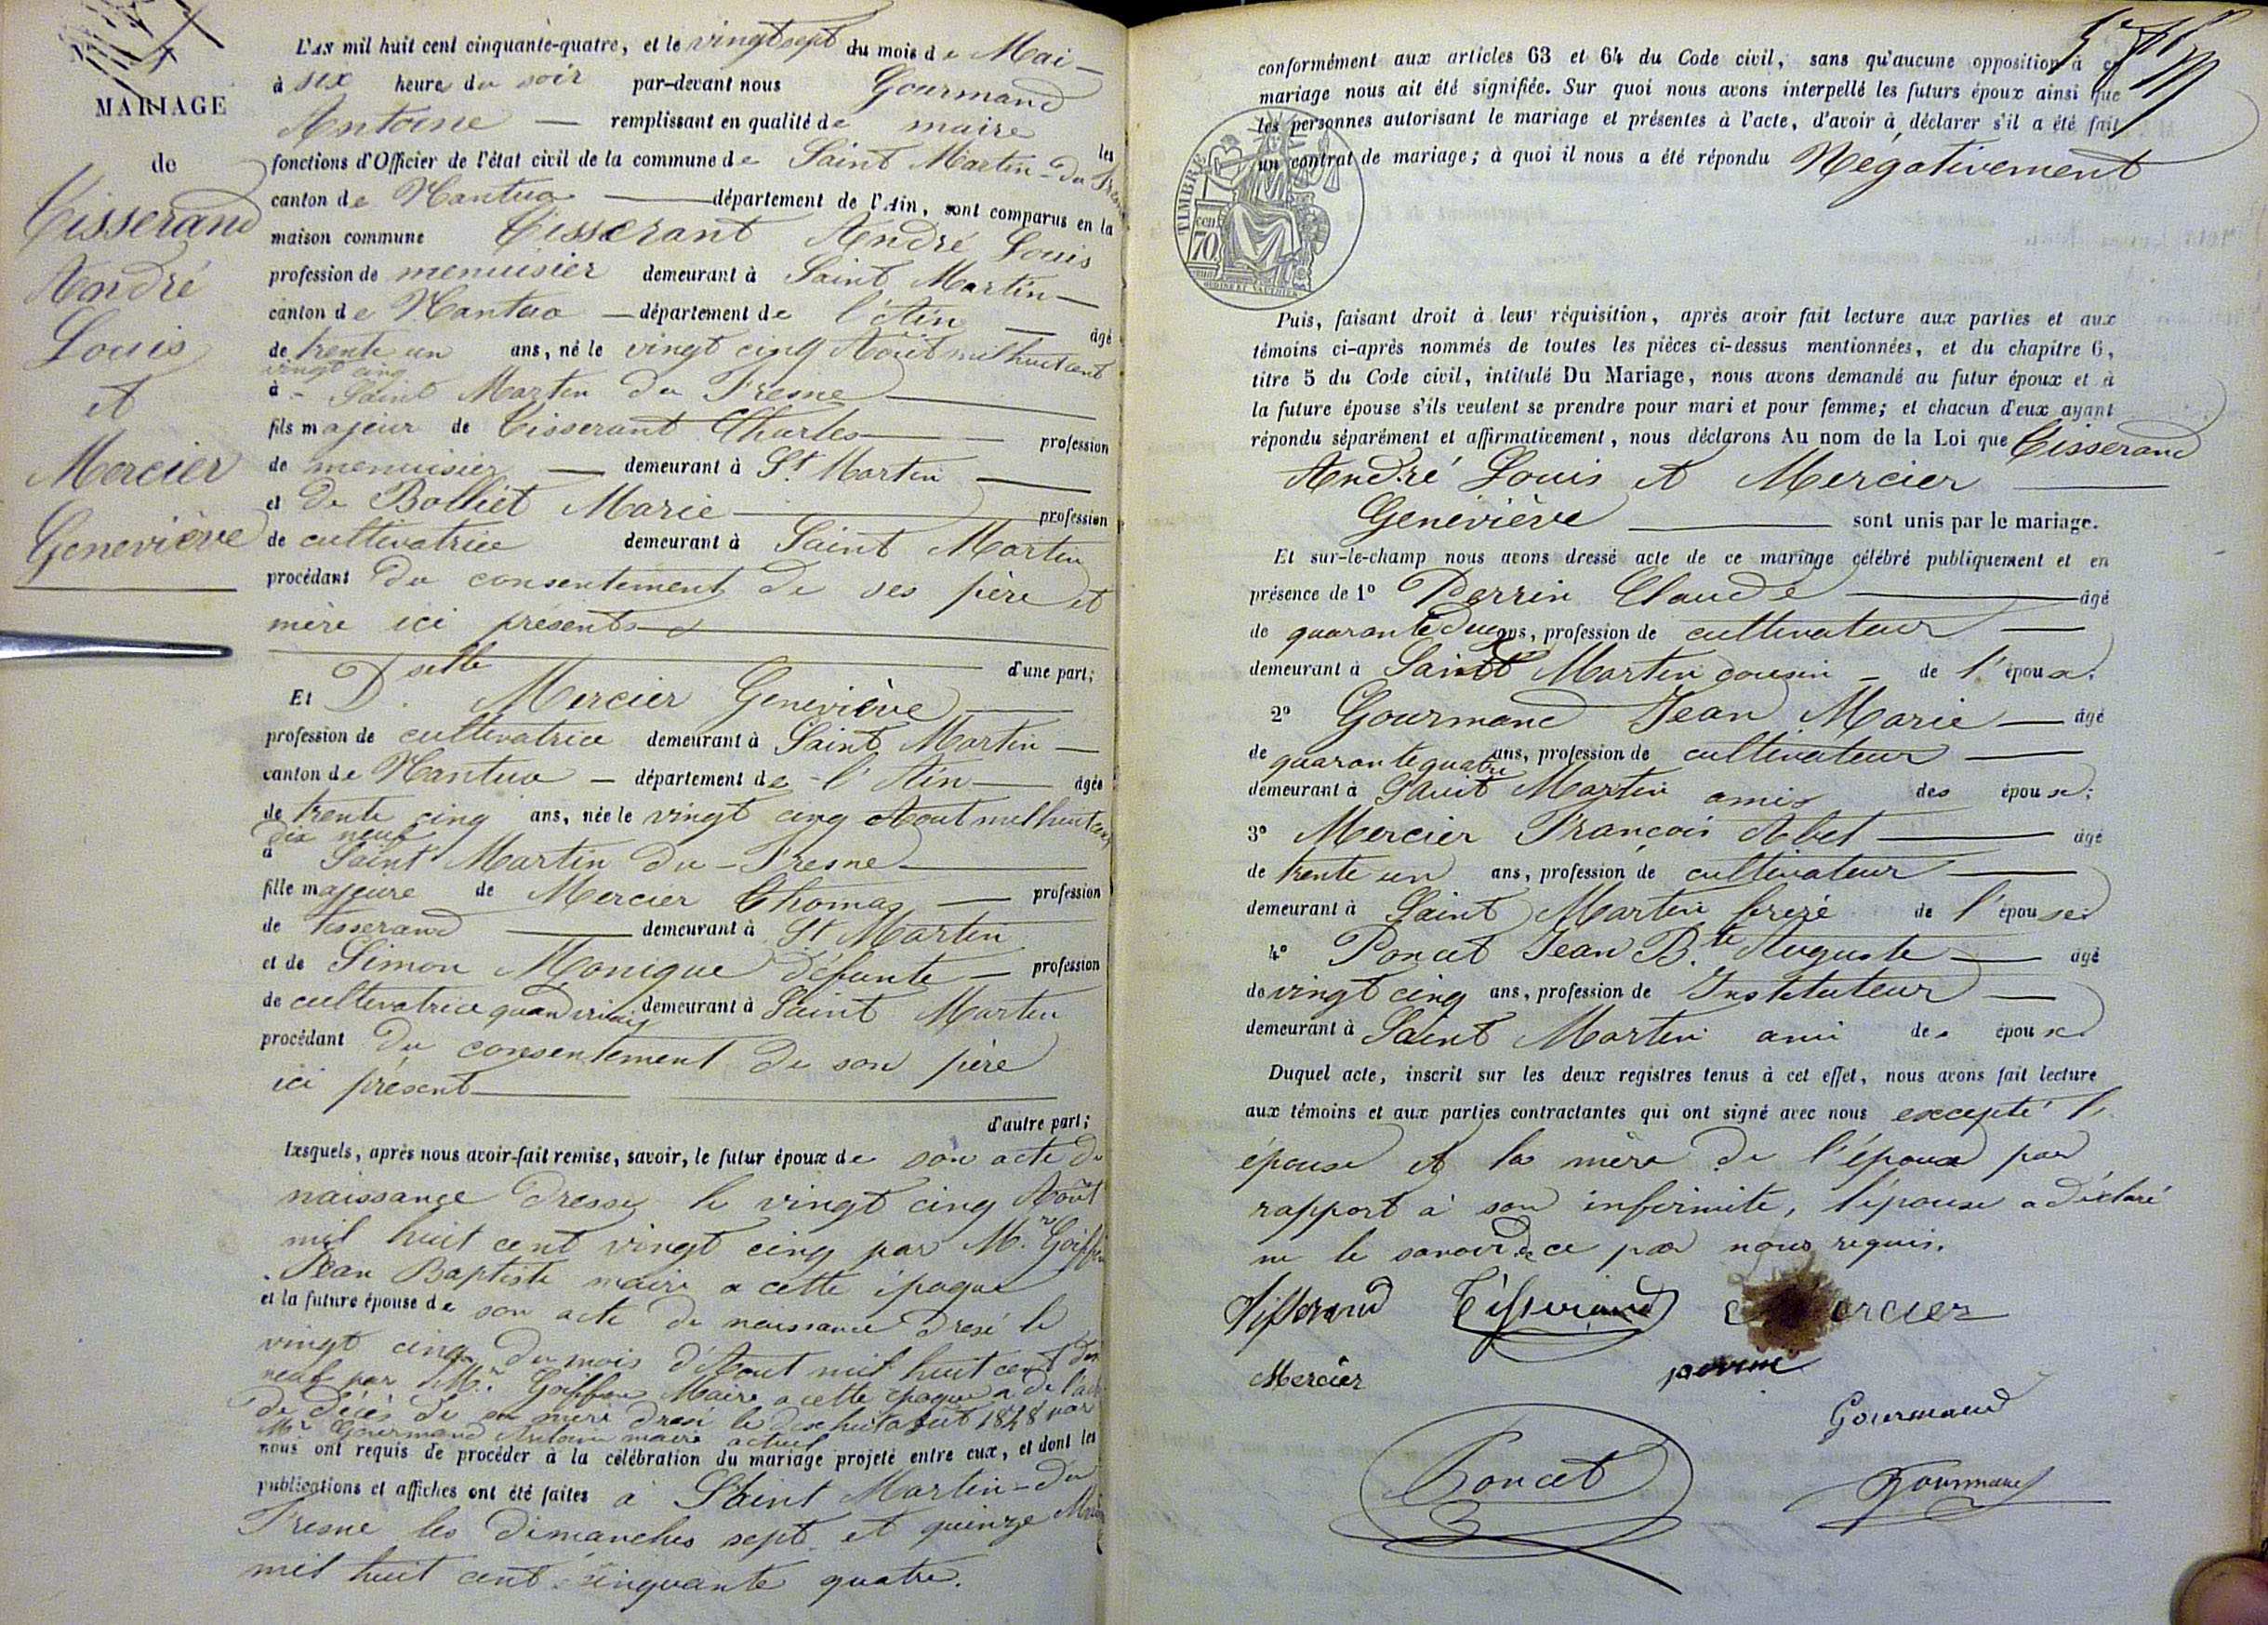 MARIAGE
de
Tisserand
André
Louis
et
Mercier
Geneviève
L'AN mil huit cent cinquante-quatre, et le vingt sept du mois de Mai
à six heure du soir par-devant nous Gourmand
Antoine — remplissant en qualité de maire les
fonctions d'Officier de l'état civil de la commune de Saint Martin-du Fresne
canton de Nantua — département de l'Ain, sont comparus en la
maison commune Tisserant André Louis
profession de menuisier demeurant à Saint Martin —
canton de Nantua — département de l'Ain — âgé
de trente un ans, né le vingt cinq Août mil huit cent
vingt cinq
à - Saint Martin du Fresne
fils majeur de Tisserant Charles — profession
de menuisier — demeurant à St. Martin —
et de Bolliet Marie — profession
de cultivatrice demeurant à Saint Martin
procédant du consentement de ses père et
mère ici présents
d'une part;
Et Dselle Mercier Geneviève
profession de cultivatrice demeurant à Saint Martin —
canton de Nantua — département de l'Ain — âgée
de trente cinq ans, née le vingt cinq Aout mil huit cent
dix neuf
à Saint Martin du-Fresne
fille majeure de Mercier Thomas — profession
de tisserand — demeurant à St Martin
et de Simon Monique défunte — profession
de cultivatrice quand vivait demeurant à Saint Martin
procédant du consentement de son père
ici présent
d'autre part;
Lesquels, après nous avoir fait remise, savoir, le futur époux de son acte de
naissance dressé le vingt cinq Août
mil huit cent vingt cinq par Mr. Goiffon
Jean Baptiste maire a cette époque
et la future épouse de son acte de naissance dresé le
vingt cinq du mois d'Aout mil huit cent dix
neuf par Mr. Goiffon Maire a cette époque a de l'acte
de décès de sa mère dresé le dix huit août 1848 par
Mr Gourmand Antoine maire actuel
nous ont requis de procéder à la célébration du mariage projeté entre eux, et dont les
publications et affiches ont été faites à Saint Martin-du
Fresne les dimanches sept et quinze Mai
mil huit cent cinquante quatre.
conformément aux articles 63 et 64 du Code civil, sans qu'aucune opposition à ce
mariage nous ait été signifiée. Sur quoi nous avons interpellé les futurs époux ainsi que
les personnes autorisant le mariage et présentes à l'acte, d'avoir à déclarer s'il a été fait
un contrat de mariage; à quoi il nous a été répondu Négativement
TIMBRE
cen
70
Puis, faisant droit à leur réquisition, après avoir fait lecture aux parties et aux
témoins ci-après nommés de toutes les pièces ci-dessus mentionnées, et du chapitre 6,
titre 5 du Code civil, intitulé Du Mariage, nous avons demandé au futur époux et à
la future épouse s'ils veulent se prendre pour mari et pour femme; et chacun d'eux ayant
répondu séparément et affirmativement, nous déclarons Au nom de la Loi que Tisserand
André Louis et Mercier
Geneviève — sont unis par le mariage.
Et sur-le-champ nous avons dressé acte de ce mariage célébré publiquement et en
présence de 1° Perrin Claude — âgé
de quarante deux ans, profession de cultivateur —
demeurant à Saint Martin cousin — de l'époux.
2° Gourmand Jean Marie — âgé
de quarante quatre ans, profession de cultivateur —
demeurant à Saint Martin amis des époux;
3° Mercier François Abel — âgé
de trente un ans, profession de cultivateur —
demeurant à Saint Martin frère de l'épouse
4° Poncet Jean B.te Auguste — âgé
de vingt cinq ans, profession de Instituteur —
demeurant à Saint Martin ami des époux
Duquel acte, inscrit sur les deux registres tenus à cet effet, nous avons fait lecture
aux témoins et aux parties contractantes qui ont signé avec nous excepté l'
épouse et la mère de l'époux par
rapport à son infirmité, l'épouse a déclaré
ne le savoir de ce par nous requis.
Tisserand Tisserand Mercier
Mercier perrin
Gourmand
Poncet Gourmand